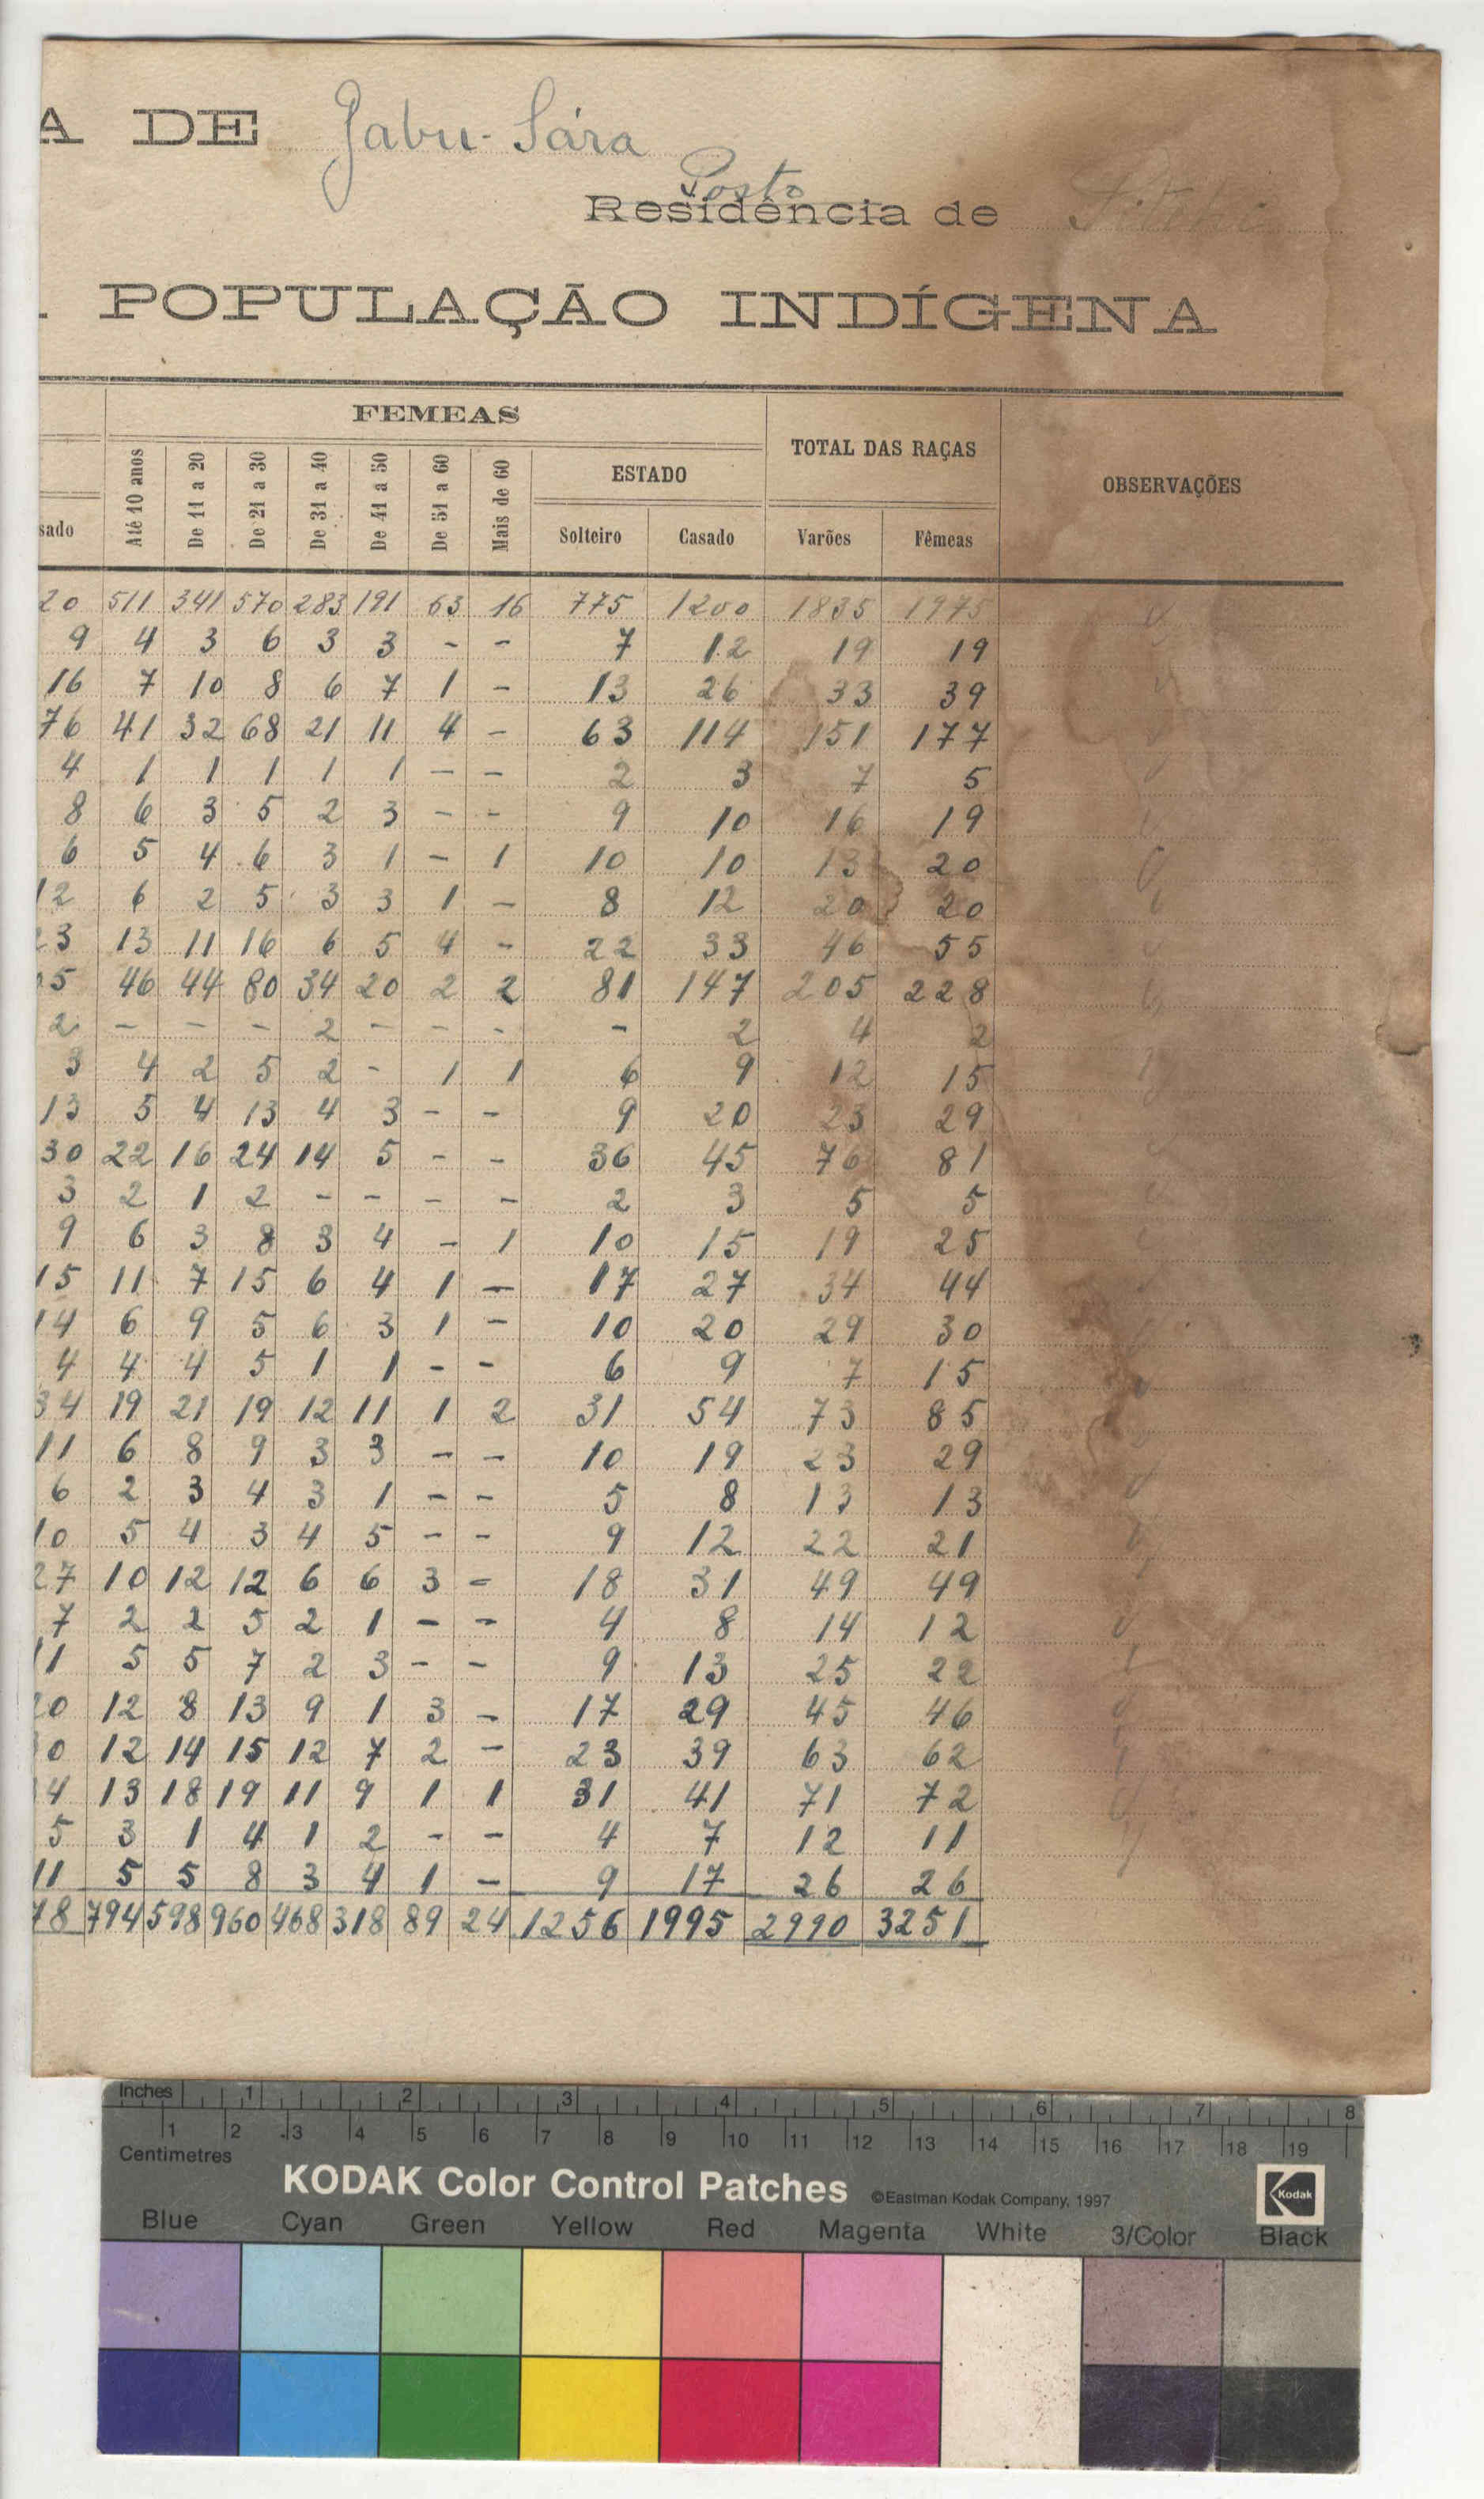 A DE Jabu-Sára
Posto
Residência de
POPULAÇÃO INDÍGENA
FEMEAS
TOTAL DAS RAÇAS
OBSERVAÇÕES
ESTADO
sado Até 10 anos De 11 a 20 De 21 a 30 De 31 a 40 De 41 a 50 De 51 a 60 Mais de 60 Solteiro Casado Varões Fêmeas
20 511 341 570 283 191 63 16 775 1200 1835 1975
9 4 3 6 3 3 - - 7 12 19 19
16 7 10 8 6 7 1 - 13 26 33 39
76 41 32 68 21 11 4 - 63 114 151 177
4 1 1 1 1 1 - - 2 3 7 5
8 6 3 5 2 3 - - 9 10 16 19
6 5 4 6 3 1 - 1 10 10 13 20
12 6 2 5 3 3 1 - 8 12 20 20
23 13 11 16 6 5 4 - 22 33 46 55
05 46 44 80 34 20 2 2 81 147 205 228
2 - - - 2 - - - - 2 4 2
3 4 2 5 2 - 1 1 6 9 12 15
13 5 4 13 4 3 - - 9 20 23 29
30 22 16 24 14 5 - - 36 45 76 81
3 2 1 2 - - - - 2 3 5 5
9 6 3 8 3 4 - 1 10 15 19 25
15 11 7 15 6 4 1 - 17 27 34 44
14 6 9 5 6 3 1 - 10 20 29 30
4 4 4 5 1 1 - - 6 9 7 15
34 19 21 19 12 11 1 2 31 54 73 85
11 6 8 9 3 3 - - 10 19 23 29
6 2 3 4 3 1 - - 5 8 13 13
10 5 4 3 4 5 - - 9 12 22 21
27 10 12 12 6 6 3 - 18 31 49 49
7 2 2 5 2 1 - - 4 8 14 12
11 5 5 7 2 3 - - 9 13 25 22
20 12 8 13 9 1 3 - 17 29 45 46
0 12 14 15 12 7 2 - 23 39 63 62
4 13 18 19 11 9 1 1 31 41 71 72
5 3 1 4 1 2 - - 4 7 12 11
11 5 5 8 3 4 1 - 9 17 26 26
78 794 598 960 468 318 89 24 1256 1995 2990 3251
Inches 1 2 3 4 5 6 7 8
1 2 3 4 5 6 7 8 9 10 11 12 13 14 15 16 17 18 19
Centimetres
KODAK Color Control Patches ©Eastman Kodak Company, 1997 Kodak
Blue Cyan Green Yellow Red Magenta White 3/Color Black